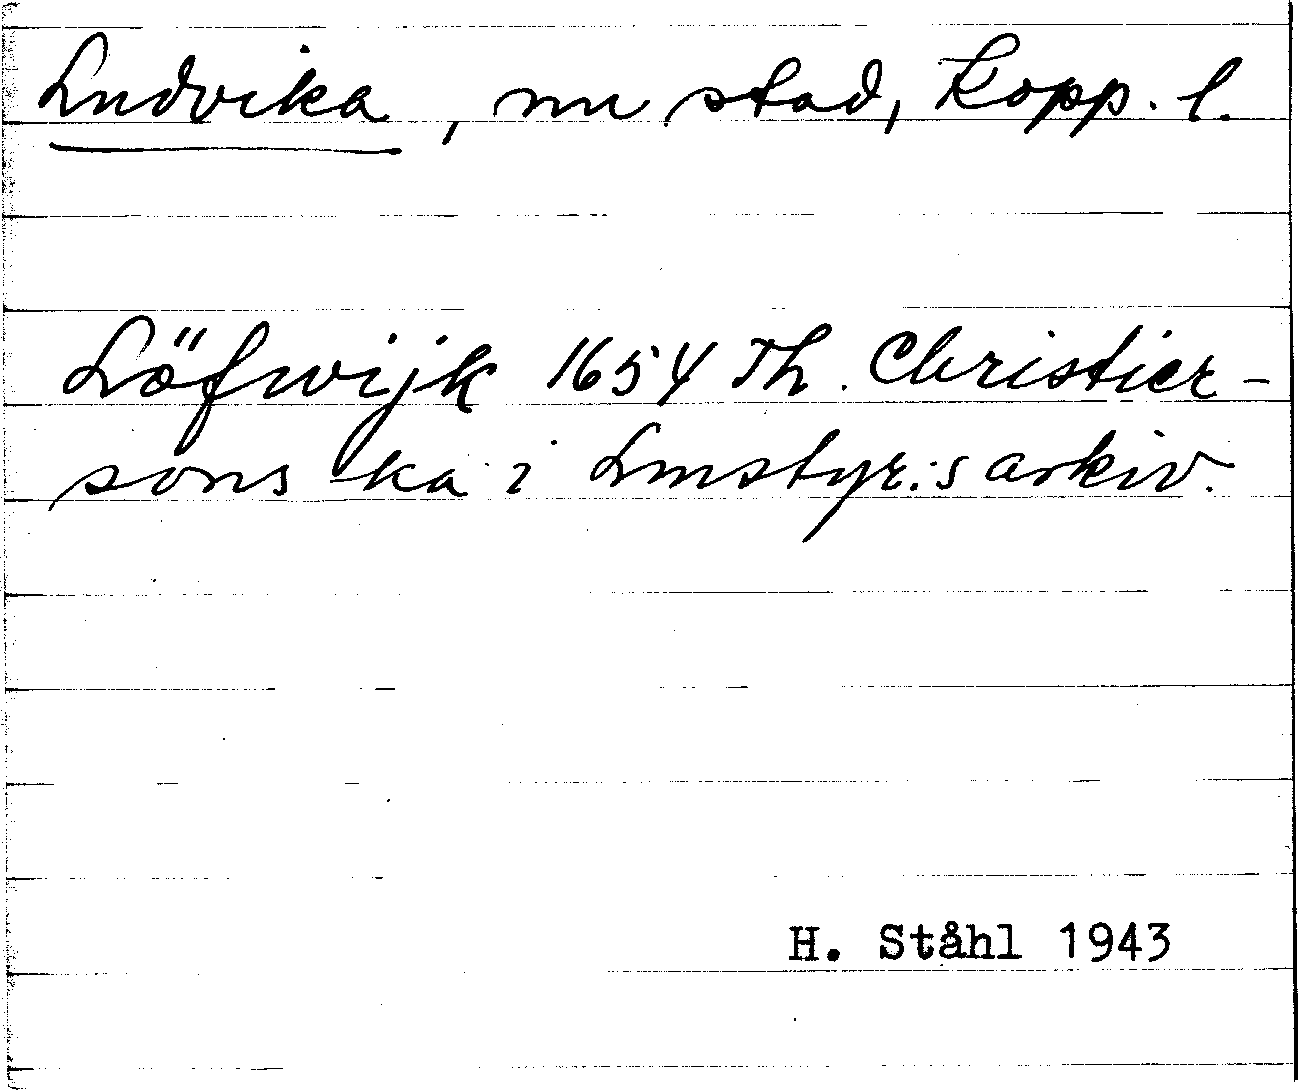 Ludvika, nu stad, Kopp. l.
Löfwijk 1654 Th. Christier-
sons ka i Lmstyr:s arkiv.
H. Ståhl 1943